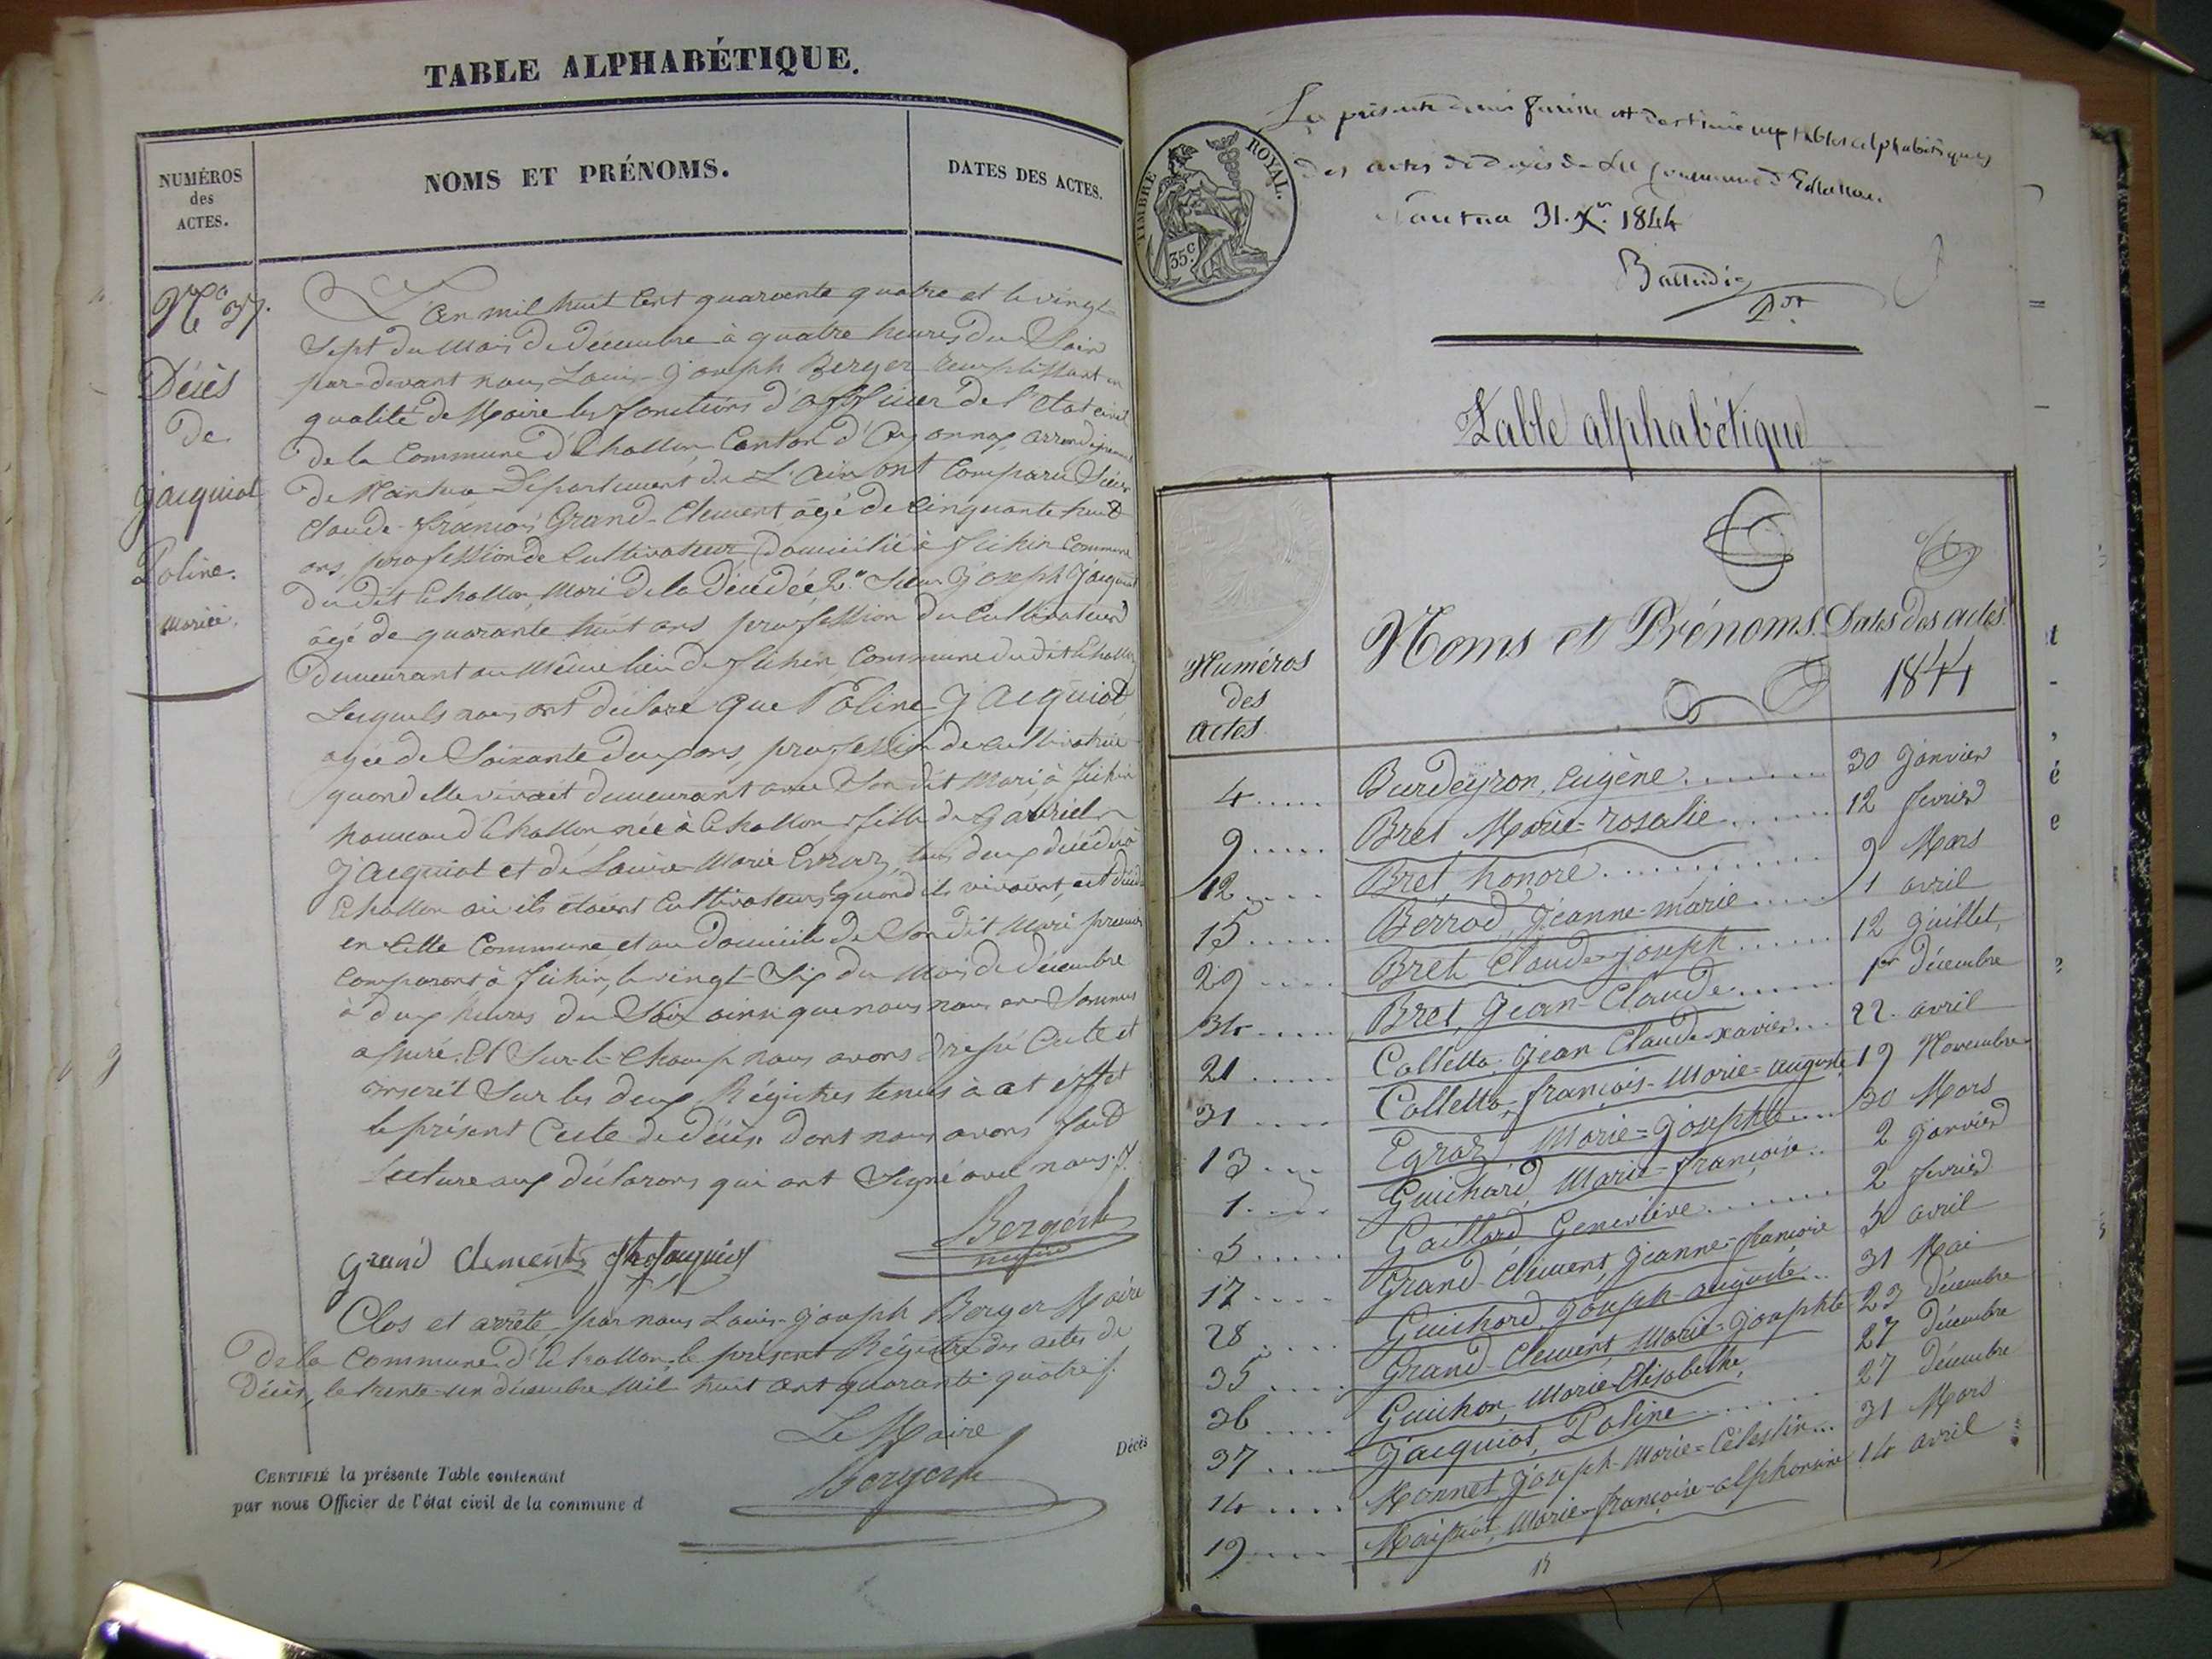 TABLE ALPHABÉTIQUE.
NUMÉROS
des
ACTES.
NOMS ET PRÉNOMS.
DATES DES ACTES.
N° 37.
Décès
De
Jacquiot
Poline.
Mariée.
L'an mil huit cent quarante quatre et le vingt
Sept du Mois de décembre à quatre heures du Soir
par-devant nous Louis-Joseph Berger remplissant en
qualité de Maire les fonctions d'officier de l'état civil
de la Commune d'Echallon Canton d'Oyonnax arrondissement
de Nantua Département de L'Ain ont Comparu Sieur
Claude-François Grand-Clement âgé de Cinquante huit
ans, profession de Cultivateur Domicilié à Commune
du dit Echallon, Mari de la Décédée, 2° Sieur Joseph Jacquiot
âgé de quarante huit ans profession de Cultivateur
Demeurant au Même lieu de Commune du dit Echallon
Lesquels nous ont déclaré Que Poline Jacquiot
agée de Soixante deux ans, profession de Cultivatrice
quand elle vivait demeurant avec Son dit Mari à
hameau d'Echallon née à Echallon fille de Gabriel
Jacquiot et de Louise-Marie tous deux décédés à
Echallon où ils étaient Cultivateurs quand ils vivaient, est décédée
en Cette Commune, et au Domicile de Son dit Mari premier
Comparant à le vingt-Six du Mois de Décembre
à deux heures du Soir ainsi que nous nous en Sommes
assuré. Et Sur-le-Champ nous avons Dressé Acte et
inscrit Sur les deux Régistres tenus à cet effet
le présent Acte de Décès Dont nous avons fait
Lecture aux déclarans qui ont Signé avec nous.
Grand Clement Jh Jacquiot
Berger
maire
Clos et arrêté par nous Louis-Joseph Berger Maire
De la Commune d'Echallon, le présent Régistre des actes de
Décès, le trente-un décembre Mil huit cent quarante quatre.
Le Maire
Berger
Décès
CERTIFIÉ la présente Table contenant
par nous Officier de l'état civil de la commune d
TIMBRE ROYAL.
35c.
La présente demi feuille est destinée aux tables alphabétiques
des actes de décès de la Commune d'Echallon.
Nantua 31. Xbre 1844
Table alphabétique
Numéros
des
actes
Noms et Prénoms.
Dates des actes.
1844
4..... Burdeyron, Eugène ....... 30 Janvier
9..... Bret, Marie-rosalie ...... 12 fevrier
12.... Bret, honoré .......... 9 Mars
15..... Berrod, Jeanne-marie ..... 1 avril
29.... Bret, Claude-joseph ...... 12 Juillet
34..... Bret, Jean-Claude ..... 1er décembre
21..... Colletta, Jean Claude-xavier... 22 avril
31.... Colletta, françois-Marie-auguste 19 Novembre
13.... Egraz, Marie-Josephte .... 30 Mars
1.... Guichard, Marie-françoise.. 2 Janvier
5..... Gaillard, Geneviève ....... 2 fevrier
17.... Grand-Clément, Jeanne-françoise 5 avril
28.... Guichard, Joseph-auguste.. 31 Mai
35.... Grand-Clement, Marie-Josephte 23 Décembre
36.... Guichon, Marie-Elisabethe, 27 Décembre
37.... Jacquiot, Poline ...... 27 Décembre
14.... Monnet, Joseph-Marie-Célestin... 31 Mars
19.... Marie-françoise-alphonsine 14 avril